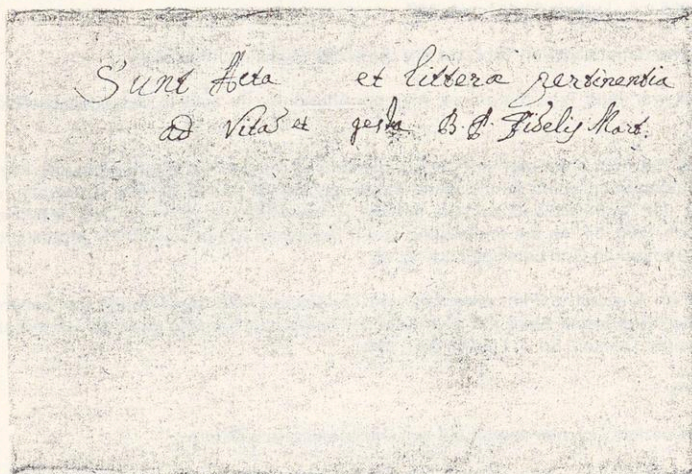 Sunt Acta et litteræ pertinentia
ad Vitã et gesta B. P. Fidelis Mart.